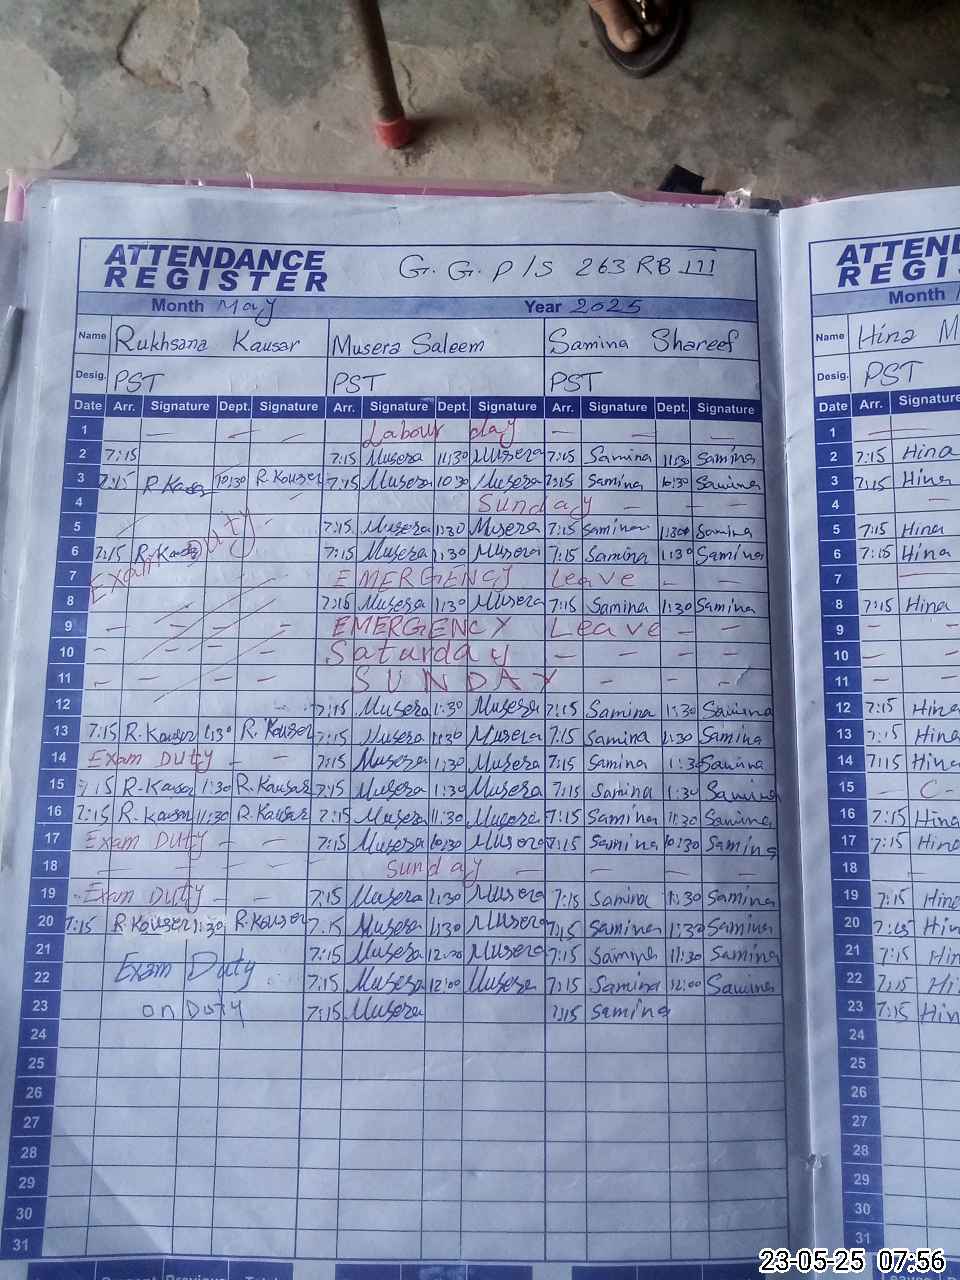 ATTENDANCE REGISTER G. G. P/S 263 RB III
Month May Year 2025
Name Rukhsana Kausar Musera Saleem Samina Shareef
Desig. PST PST PST
Date Arr. Signature Dept. Signature Arr. Signature Dept. Signature Arr. Signature Dept. Signature
1 — — — Labour day — — —
2 7:15 7:15 Musera 11:30 Musera 7:15 Samina 11:30 Samina
3 7:15 R.Kauser 10:30 R.Kouser 7:15 Musera 10:30 Musera 7:15 Samina 10:30 Samina
4 Sunday
5 7:15 Musera Musera 7:15 Samina Samina
6 7:15 7:15 Musera 1:30 Musera 7:15 Samina 1:30 Samina
Exam Duty
7 EMERGENCY Leave
8 7:15 Musera 1:30 Musera 7:15 Samina 1:30 Samina
9 EMERGENCY Leave
10 Saturday
11 SUNDAY
12 7:15 Musera 1:30 Musera 7:15 Samina 1:30 Samina
13 7:15 R.Kauser 1:30 R.Kauser 7:15 Musera 1:30 Musera 7:15 Samina 1:30 Samina
14 Exam Duty 7:15 Musera 1:30 Musera 7:15 Samina 1:30 Samina
15 7:15 R.Kauser 1:30 R.Kausar 7:15 Musera 1:30 Musera 7:15 Samina 1:30 Samina
16 7:15 R.Kauser 11:30 R.Kausar 7:15 Musera 11:30 Musera 7:15 Samina 11:30 Samina
17 Exam Duty 7:15 Musera 10:30 Musera 7:15 Samina 10:30 Samina
18 Sunday
19 Exam Duty 7:15 Musera 1:30 Musera 7:15 Samina 1:30 Samina
20 7:15 R.Kouser 1:30 R.Kouser Musera 1:30 Musera 7:15 Samina 1:30 Samina
21 7:15 Musera Musera 7:15 Samina 11:30 Samina
22 Exam Duty 7:15 Musera 12:00 Musera 7:15 Samina 12:00 Samina
23 on Duty 7:15 Musera 7:15 Samina
24
25
26
27
28
29
30
31
Month
Name Hina
Desig. PST
Date Arr.
1
2 7:15 Hina
3 7:15 Hina
4
5 7:15 Hina
6 7:15 Hina
7
8 7:15 Hina
9
10
11
12 7:15 Hina
13 7:15 Hina
14 7:15 Hina
15 C-
16 7:15 Hina
17 7:15 Hina
18
19 7:15
20 7:15
21 7:15
22 7:15
23 7:15
24
25
26
27
28
29
30
31
23-05-25 07:56